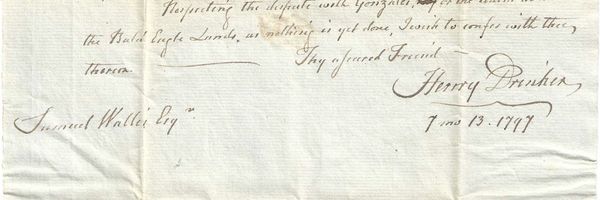 Respecting the dispute with Gonzales, or the claim
the Bald Eagle Lands, as nothing is yet done, I wish to confer with thee
thereon.
Thy assured Friend
Henry Drinker
Samuel Wallis Esqr.
7 mo 13. 1797